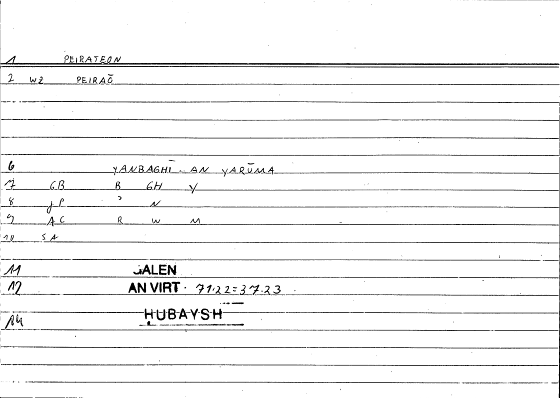 1 PEIRATEON
2 WZ PEIRAŌ
6 YANBAGHĪ . AN YARŪMA
7 GB B GH Y
8 JP ʾ N
9 AC R W M
10 SA
11 GALEN
12 AN VIRT . 71.22=37.23
14 ḤUBAYSH